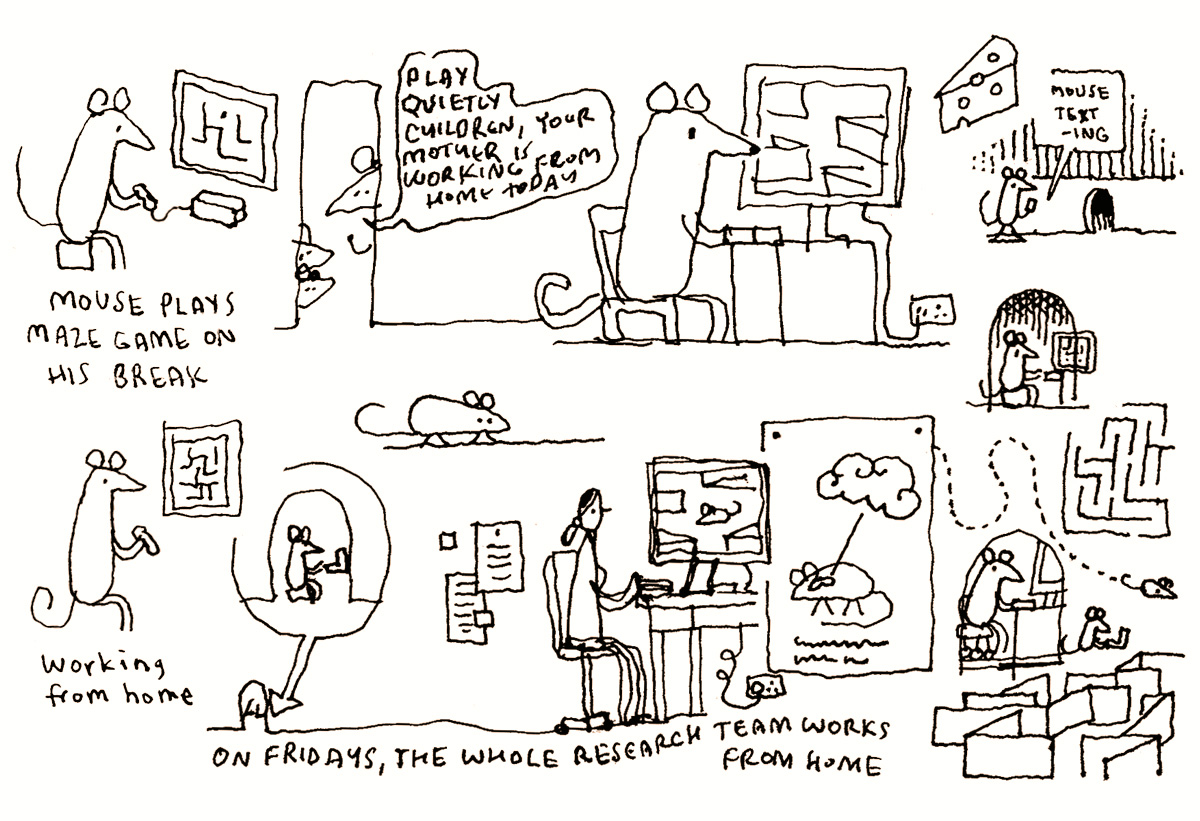 PLAY
QUIETLY
CHILDREN, YOUR
MOTHER IS
WORKING FROM
HOME TODAY
MOUSE
TEXT
-ING
MOUSE PLAYS
MAZE GAME ON
HIS BREAK
working
from home
ON FRIDAYS, THE WHOLE RESEARCH TEAM WORKS
FROM HOME